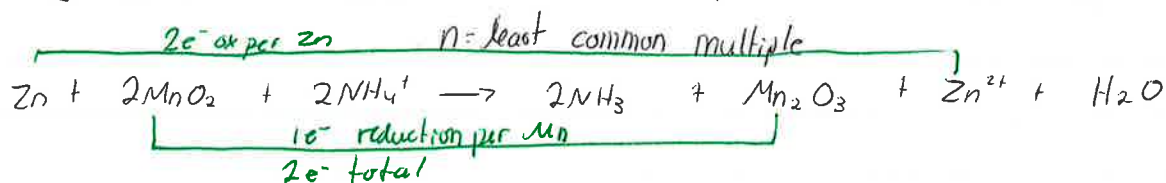 2e⁻ ox per Zn n = least common multiple
Zn + 2MnO₂ + 2NH₄⁺ → 2NH₃ + Mn₂O₃ + Zn²⁺ + H₂O
1e⁻ reduction per Mn
2e⁻ total